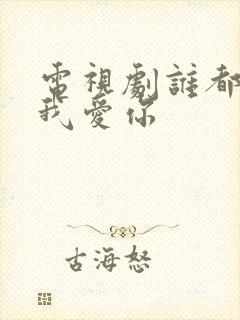 電視劇誰都
我愛你
古海怒